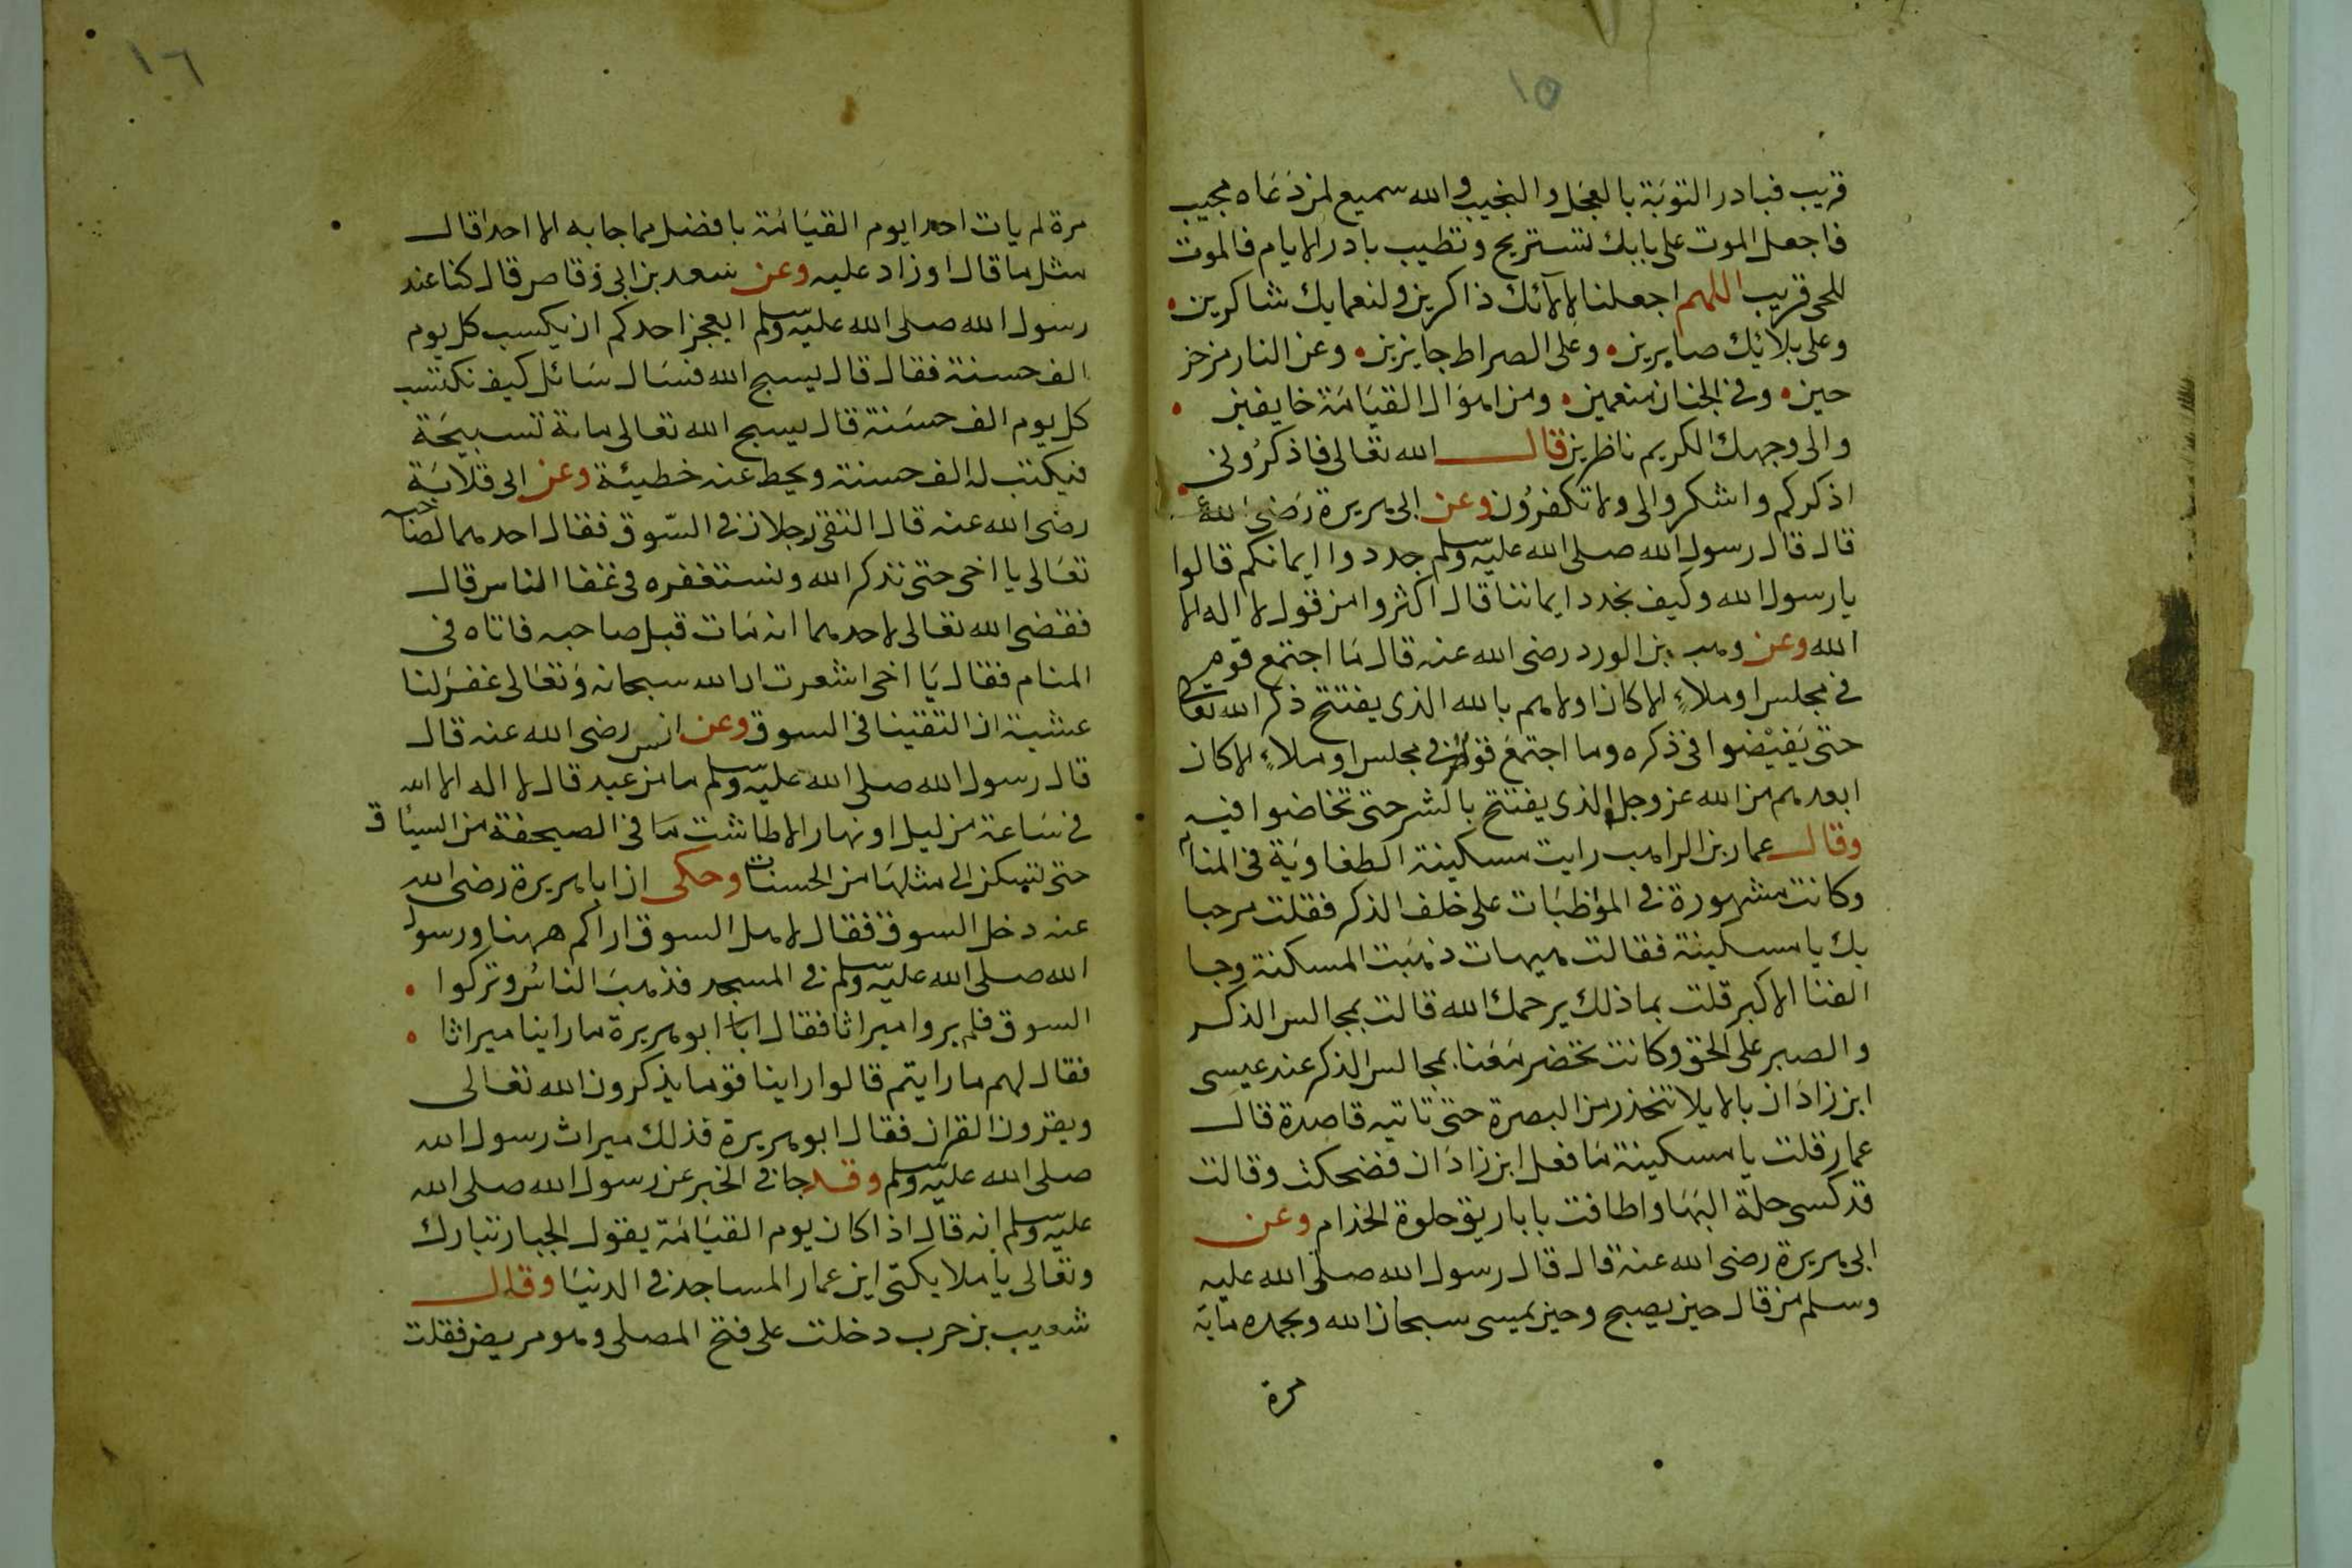 ١٥
قريب فبادر التوبة بالعجل والنجيب والله سميع لمن دعاه مجيب
فاجعل الموت على بابك لتستريح وتطيب بادر الايام فالموت
للحى قريب اللهم اجعلنا لالآئك ذاكرين ولنعمايك شاكرين
وعلى بلائك صابرين وعلى الصراط جايزين وعن النار مزحز
حين وفى الجنان منعمين ومن اهوال القيامة خايفين
والى وجهك الكريم ناظرين قال الله تعالى فاذكرونى
اذكركم واشكروا لى ولا تكفرون وعن ابى هريرة رضى الله
قال قال رسول الله صلى الله عليه وسلم جددوا ايمانكم قالوا
يا رسول الله وكيف نجدد ايماننا قال اكثروا من قول لا اله الا
الله وعن وهب بن الورد رضى الله عنه قال ما اجتمع قوم
فى مجلس او ملاءٍ الا كان اولاهم بالله الذى يفتتح ذكر الله تعالى
حتى يفيضوا فى ذكره وما اجتمع قوم فى مجلس او ملاءٍ الا كان
ابعدهم من الله عز وجل الذى يفتتح بالشر حتى تخاضوا فيه
وقال عمار بن الراهب رايت مسكينة الطفاوية فى المنام
وكانت مشهورة فى المواظبات على خلف الذكر فقلت مرحبا
بك يا مسكينة فقالت هيهات ذهبت المسكنة وجا
الغنا الاكبر قلت بماذلك يرحمك الله قالت بمجالس الذكر
والصبر على الحق وكانت تحضر معنا بمجالس الذكر عند عيسى
ابن زادان بالايلا تنحدر من البصرة حتى تاتيه قاصدة قال
عمار قلت يا مسكينة ما فعل ابن زادان فضحكت وقالت
قد كسى حلة البها واطافت باباريق حلوة الخدام وعن
ابى هريرة رضى الله عنه قال قال رسول الله صلى الله عليه
وسلم من قال حين يصبح وحين يمسى سبحان الله وبحمده ماية
مرة
١٦
مرة لم يات احدا يوم القيامة بافضل مما جا به الا احدا قال
مثل ما قال او زاد عليه وعن سعد بن ابى وقاص قال كنا عند
رسول الله صلى الله عليه وسلم ايعجز احدكم ان يكسب كل يوم
الف حسنة فقال قال يسبح الله فسال سائل كيف نكتسب
كل يوم الف حسنة قال يسبح الله تعالى ماية تسبيحة
فيكتب له الف حسنة ويحط عنه خطيئة وعن ابى قلابة
رضى الله عنه قال التقى رجلان فى السوق فقال احدهما لصاحبه
تعالى يا اخى حتى نذكر الله ونستغفره فى غفا الناس قال
فقضى الله تعالى لاحدهما انه مات قبل صاحبه فاتاه فى
المنام فقال يا اخى اشعرت ان الله سبحانه وتعالى غفر لنا
عشية ان التقينا فى السوق وعن انس رضى الله عنه قال
قال رسول الله صلى الله عليه وسلم ما من عبد قال لا اله الا الله
فى ساعة من ليل او نهار الا طاشت ما فى الصحيفة من السيات
حتى تسكن الى مثلها من الحسنات وحكى ان ابا هريرة رضى الله
عنه دخل السوق فقال لاهل السوق اراكم ههنا ورسول
الله صلى الله عليه وسلم فى المسجد فذهب الناس وتركوا
السوق فلم يروا ميراثا فقال ابا ابو هريرة ما راينا ميراثا
فقال لهم ما رايتم قالوا راينا قوما يذكرون الله تعالى
ويقرون القران فقال ابو هريرة فذلك ميراث رسول الله
صلى الله عليه وسلم وقد جا فى الخبر عن رسول الله صلى الله
عليه وسلم انه قال اذا كان يوم القيامة يقول الجبار تبارك
وتعالى يا ملايكتى اين عمار المساجد فى الدنيا وقال
شعيب بن حرب دخلت على فتح المصلى وهو مريض فقلت